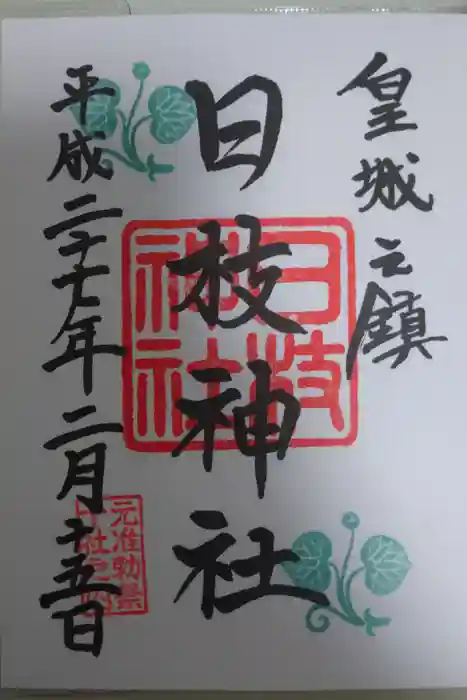 皇城之鎮
日枝神社
平成二十七年二月十五日
日枝
神社
元准勅祭
十社之内